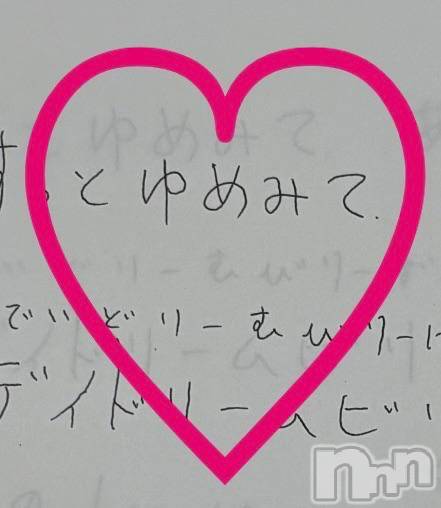 ずっとゆめみて.
でいどりーむびりー
デイドリームビリ
nnn